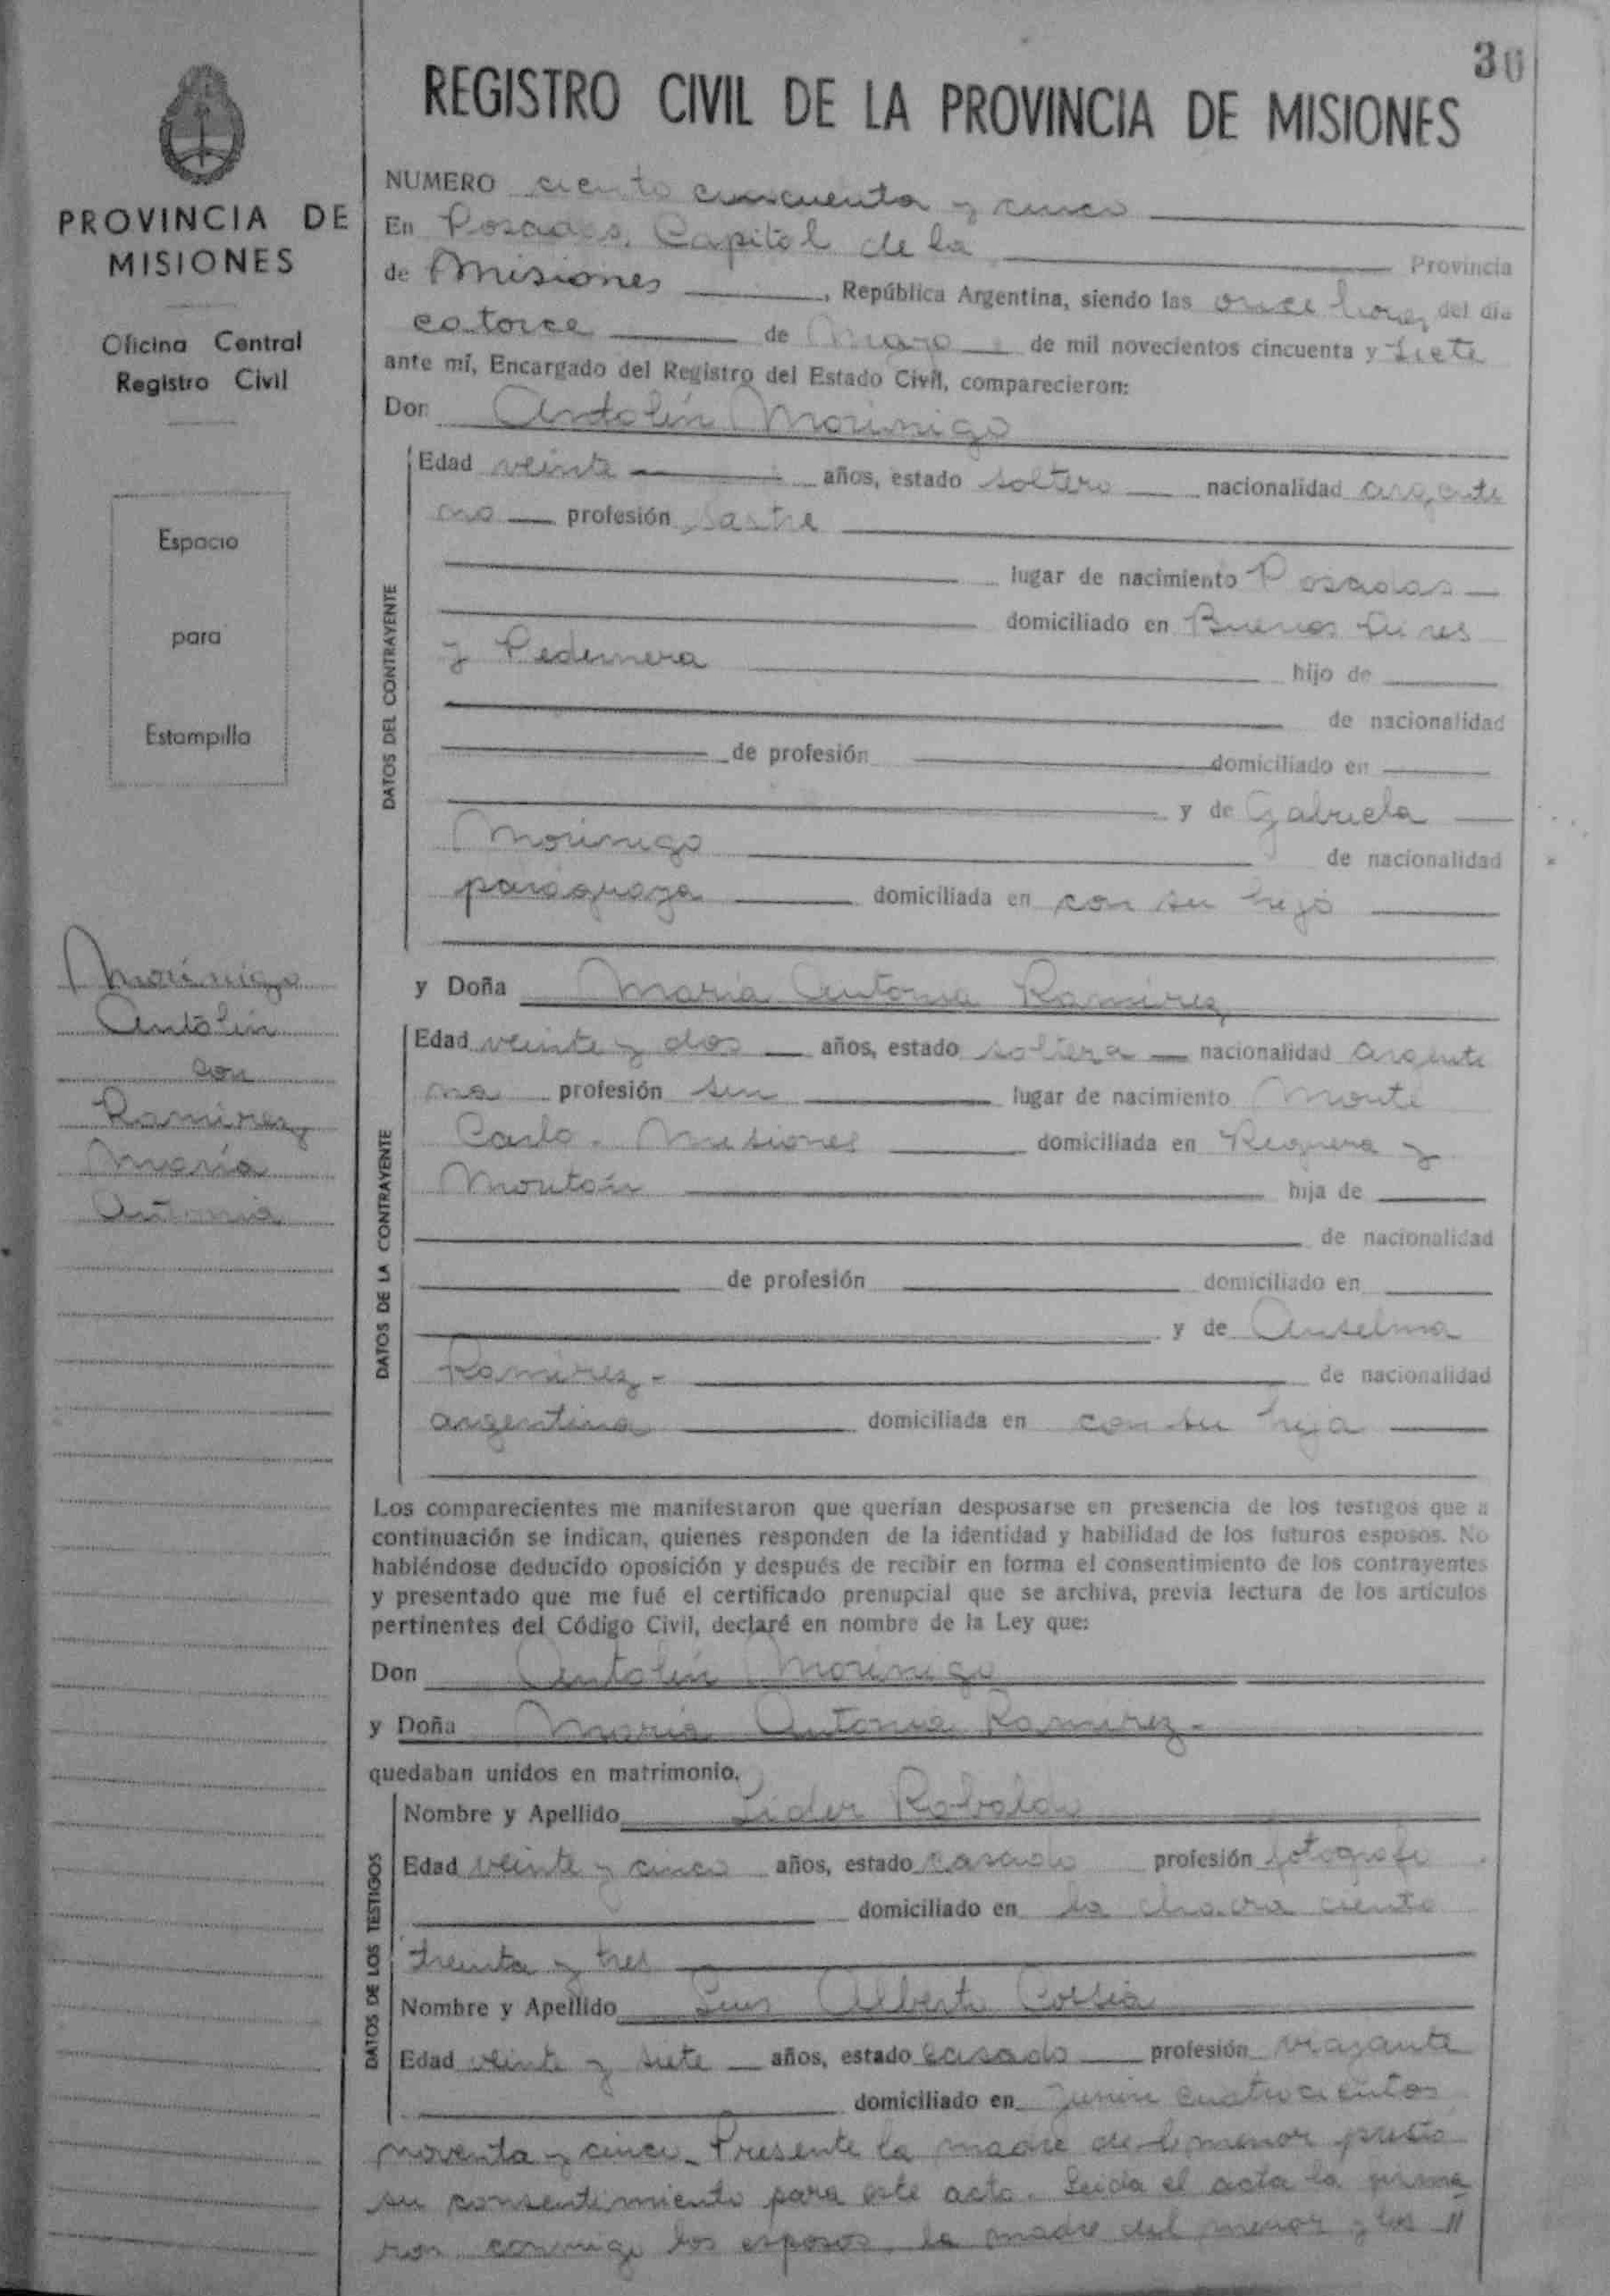 30
REGISTRO CIVIL DE LA PROVINCIA DE MISIONES
PROVINCIA DE
MISIONES
Oficina Central
Registro Civil
Espacio
para
Estampilla
Morinigo
Antolín
con
Ramirez
María
Antonia
NUMERO ciento cincuenta y cinco
En Posadas, Capital de la Provincia
de Misiones, República Argentina, siendo las once horas del dia
catorce de Mayo de mil novecientos cincuenta y siete
ante mí, Encargado del Registro del Estado Civil, comparecieron:
Don Antolín Morinigo
DATOS DEL CONTRAYENTE
Edad veinte años, estado soltero nacionalidad argenti
no profesión sastre
lugar de nacimiento Posadas
domiciliado en Buenos Aires
y Pedernera hijo de
de nacionalidad
de profesión domiciliado en
y de Gabriela
Morinigo de nacionalidad
paraguaya domiciliada en con su hijo
y Doña María Antonia Ramirez
DATOS DE LA CONTRAYENTE
Edad veinte y dos años, estado soltera nacionalidad argenti
na profesión sin lugar de nacimiento Monte
Carlo - Misiones domiciliada en Reguera y
Montoín hija de
de nacionalidad
de profesión domiciliado en
y de Anselma
Ramirez - de nacionalidad
argentina domiciliada en con su hija
Los comparecientes me manifestaron que querían desposarse en presencia de los testigos que a
continuación se indican, quienes responden de la identidad y habilidad de los futuros esposos. No
habiéndose deducido oposición y después de recibir en forma el consentimiento de los contrayentes
y presentado que me fué el certificado prenupcial que se archiva, previa lectura de los artículos
pertinentes del Código Civil, declaré en nombre de la Ley que:
Don Antolín Morinigo
y Doña María Antonia Ramirez -
quedaban unidos en matrimonio.
DATOS DE LOS TESTIGOS
Nombre y Apellido Lider Robaldo
Edad veinte y cinco años, estado casado profesión fotografo
domiciliado en la chacra ciento
treinta y tres
Nombre y Apellido Luis Alberto
Edad veinte y siete años, estado casado profesión viajante
domiciliado en Junín cuatrocientos
noventa y cinco - Presente la madre del menor prestó
su consentimiento para este acto. Leida el acta la firma
ron conmigo los esposos, la madre del menor y los //